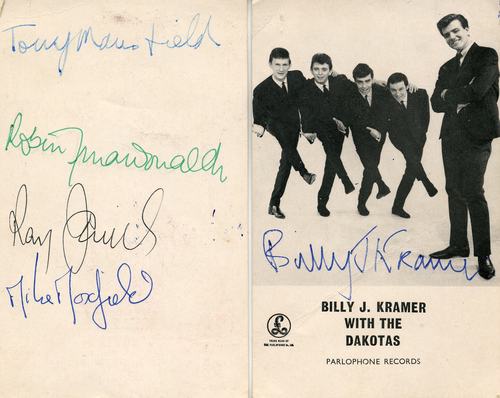 Tony Mansfield
Robin Macdonald
Ray Jones
Mike Maxfield
Billy J Kramer
BILLY J. KRAMER
WITH THE
DAKOTAS
PARLOPHONE RECORDS